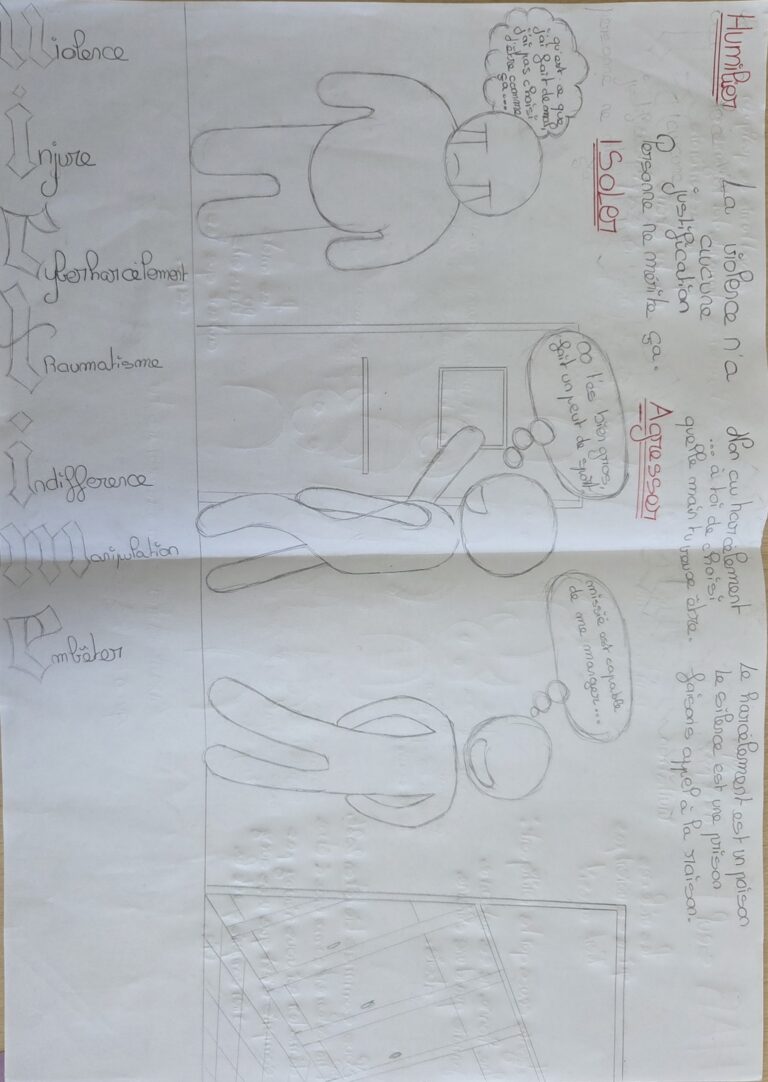 Humilier
La violence n'a
aucune
justification
Personne ne mérite ça.
Non au harcèlement
... à toi de choisi
quelle main tu
être.
Le harcèlement est un poison
le silence est une prison
faisons appel à la raison.
ISOLER
Agresser
qu'est ce que
j'ai fait de mal
j'ai pas choisi
d'être comme
ça...
t'es bien gros,
fait un peut de sport
est capable
de me manger...
Violence
Injure
Cyberharcèlement
Traumatisme
Indifférence
Manipulation
Embêter